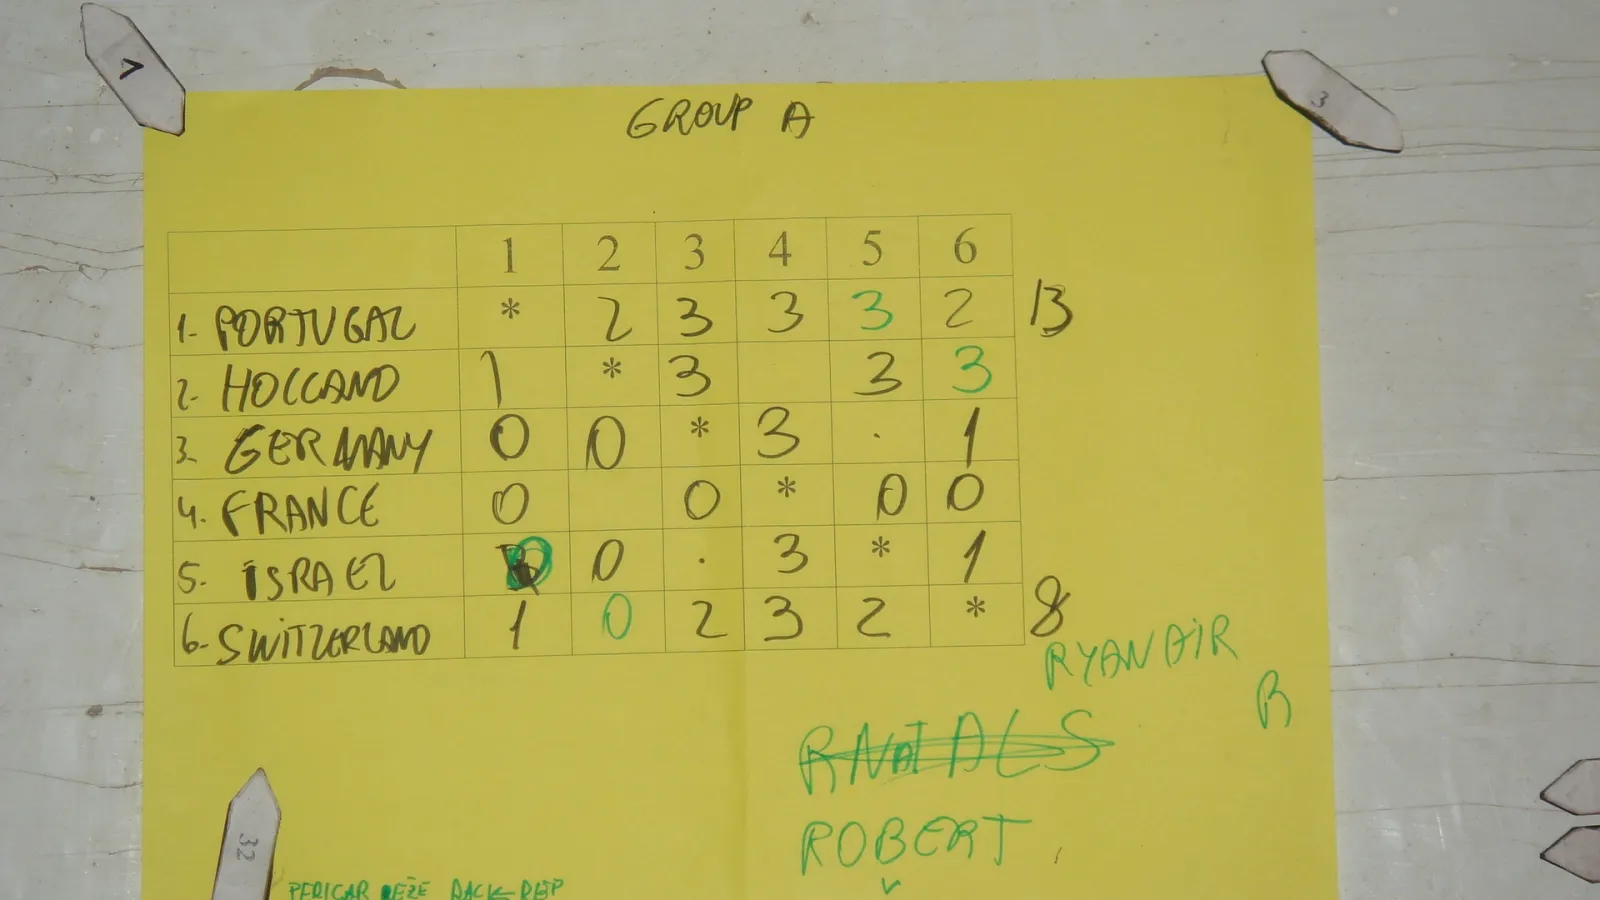 GROUP A
1 2 3 4 5 6
1. PORTUGAL * 2 3 3 3 2 13
2. HOLLAND 1 * 3 3 3
3. GERMANY 0 0 * 3 . 1
4. FRANCE 0 0 * 0 0
5. ISRAEL 0 0 . 3 * 1
6. SWITZERLAND 1 0 2 3 2 * 8
RYANAIR
R
ROBERT
3
32